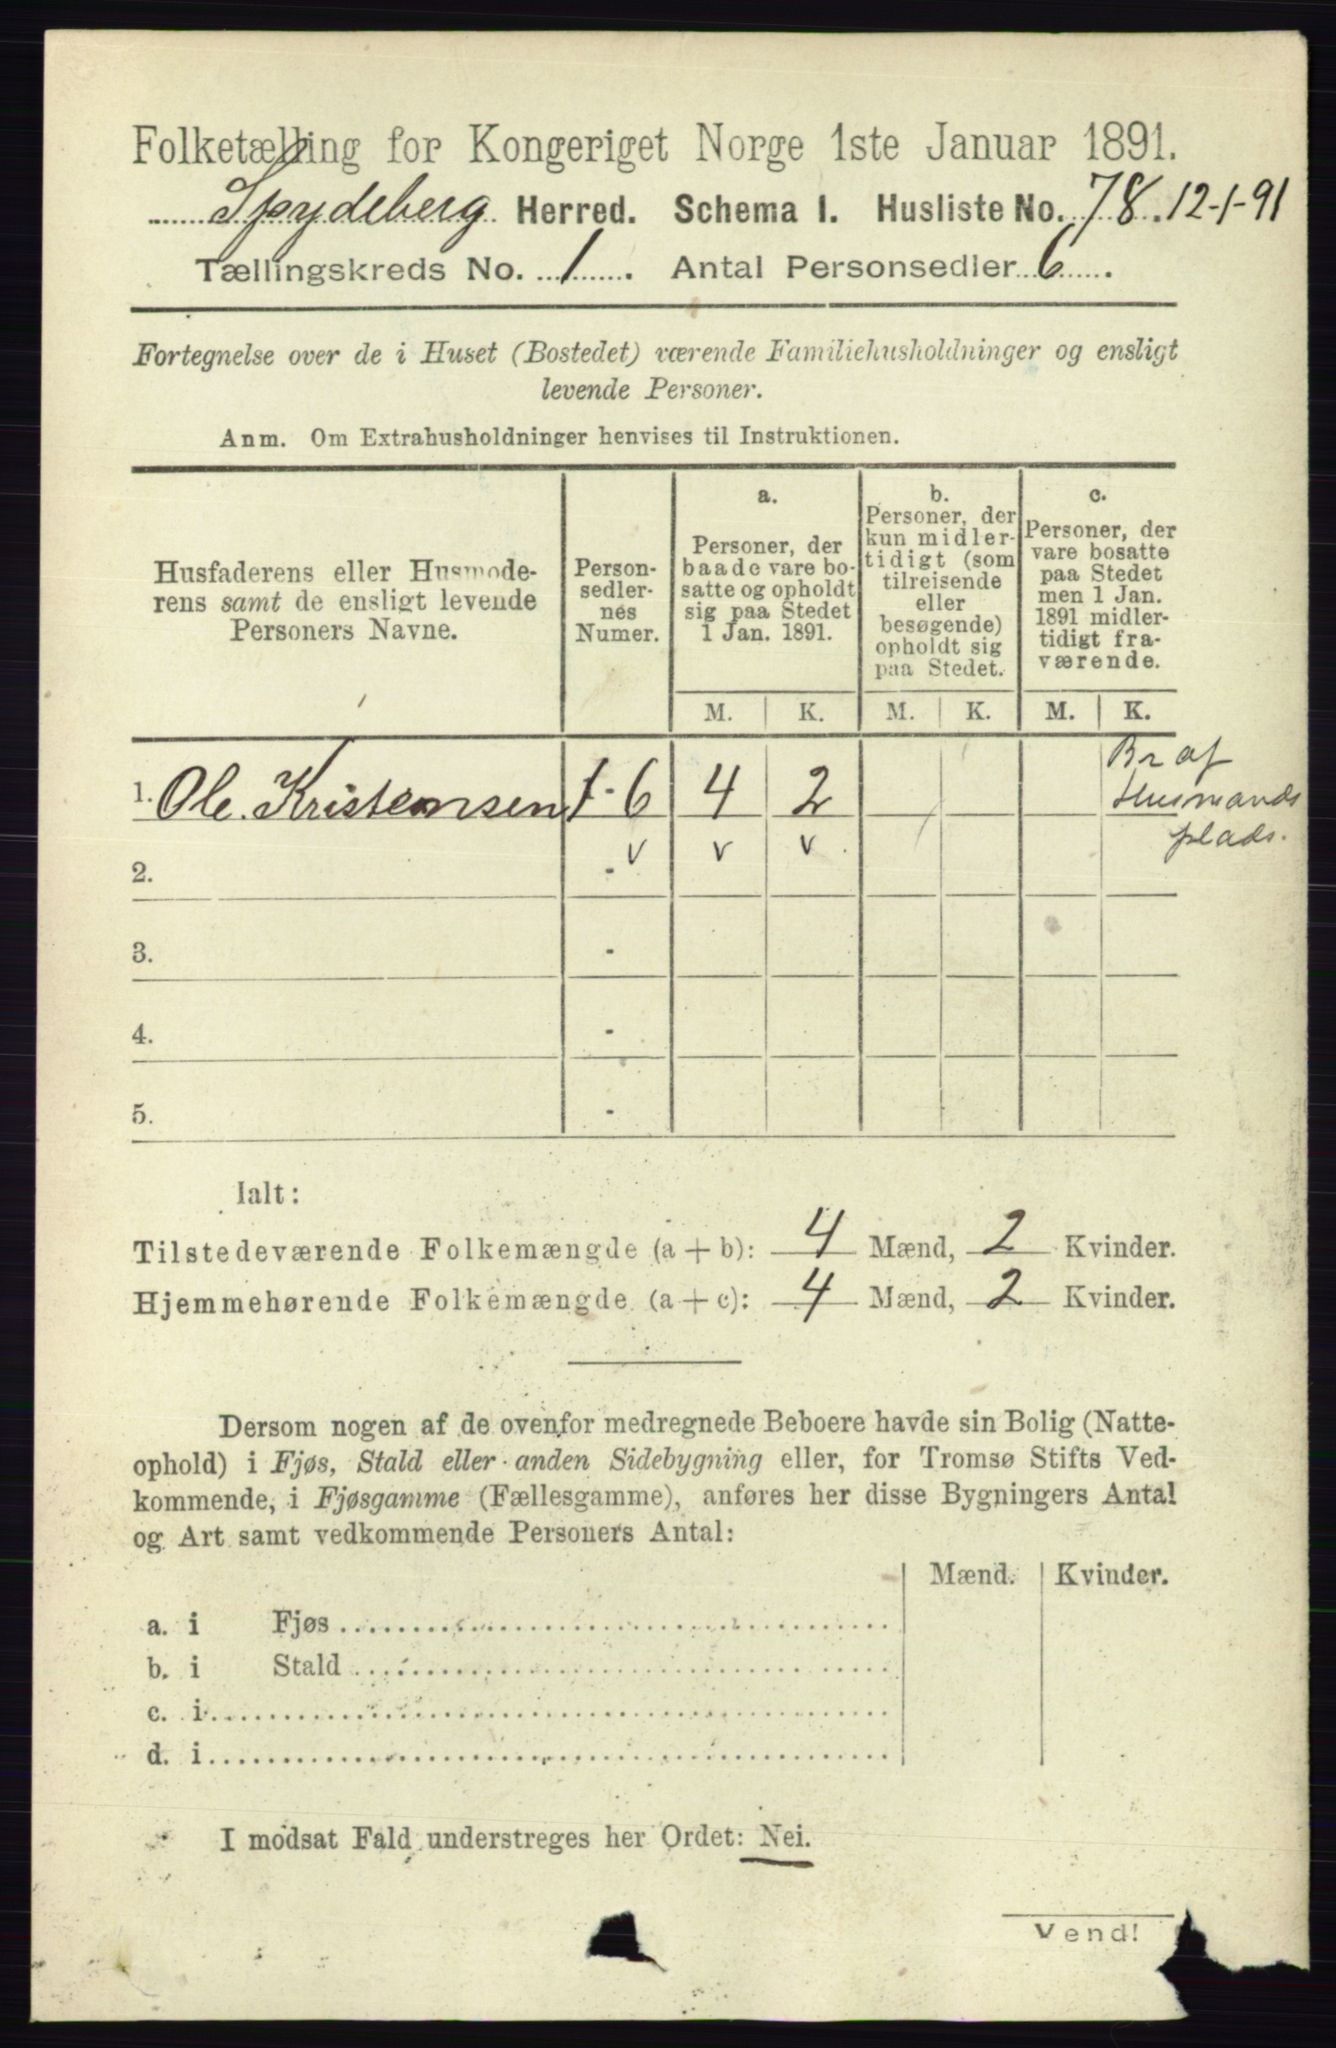 Folketælling for Kongeriget Norge 1ste Januar 1891.
Spydeberg Herred. Schema I. Husliste No. 78. 12-1-91
Tællingskreds No. 1. Antal Personsedler 6.
Fortegnelse over de i Huset (Bostedet) værende Familiehusholdninger og ensligt
levende Personer.
Anm. Om Extrahusholdninger henvises til Instruktionen.
Husfaderens eller Husmode-
rens samt de ensligt levende
Personers Navne.
Person-
sedler-
nes
Numer.
a.
Personer, der
baade vare bo-
satte og opholdt
sig paa Stedet
1 Jan. 1891.
b.
Personer, der
kun midler-
tidigt (som
tilreisende
eller
besøgende)
opholdt sig
paa Stedet.
c.
Personer, der
vare bosatte
paa Stedet
men 1 Jan.
1891 midler-
tidigt fra-
værende.
M. K. M. K. M. K.
1. Ole. Kristensen 1-6 4 2
Br af
Husmands
plads.
2. - v v v
3. -
4. -
5. -
Ialt:
Tilstedeværende Folkemængde (a + b): 4 Mænd, 2 Kvinder.
Hjemmehørende Folkemængde (a + c): 4 Mænd, 2 Kvinder.
Dersom nogen af de ovenfor medregnede Beboere havde sin Bolig (Natte-
ophold) i Fjøs, Stald eller anden Sidebygning eller, for Tromsø Stifts Ved-
kommende, i Fjøsgamme (Fællesgamme), anføres her disse Bygningers Antal
og Art samt vedkommende Personers Antal:
Mænd. Kvinder.
a. i Fjøs
b. i Stald
c. i
d. i
I modsat Fald understreges her Ordet: Nei.
Vend!